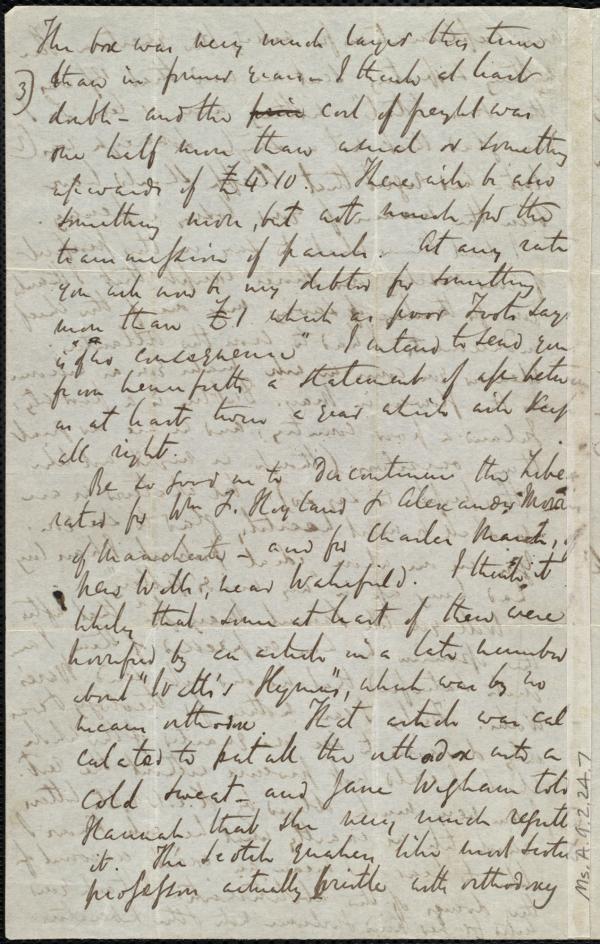 The box was very much larger this time
3) than in former years - I think at least
double - and the price cost of freight was
one half more than usual or something
upwards of £4.10. There will be also
something more, but not much for the
transmission of parcels. At any rate
you will now be my debtor for something
more than £1 which as poor Toots says
is "of no consequence" I intend to send you
from henceforth a statement of a/c betw
us at least twice a year which will keep
all right.
Be so good as to discontinue the Libe
rator for Wm F. Hoyland & Alexander
of Manchester - and for Charles March,
New Wells, near Wakefield. I think it
likely that some at least of them were
horrified by an article in a late number
about "Watts's Hymns", which was by no
means orthodox. That article was cal
culated to put all the orthodox into a
cold sweat - and Jane Wigham told
Hannah that she very much regrette
it. The Scotch Quakers like most Scotch
professors actually bristle with orthodoxy
Ms. A. 9. 2. 24. 7